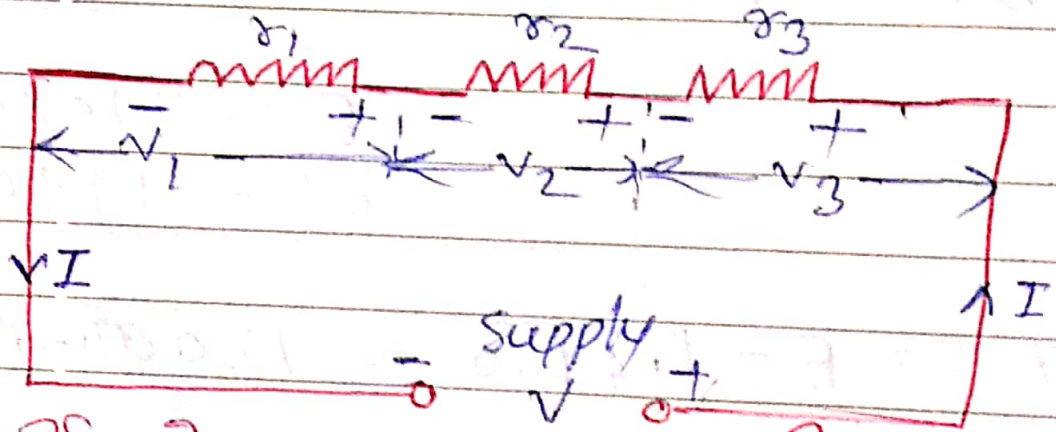 r1 r2 r3
- + - + - +
V1 V2 V3
I I
Supply
- V +